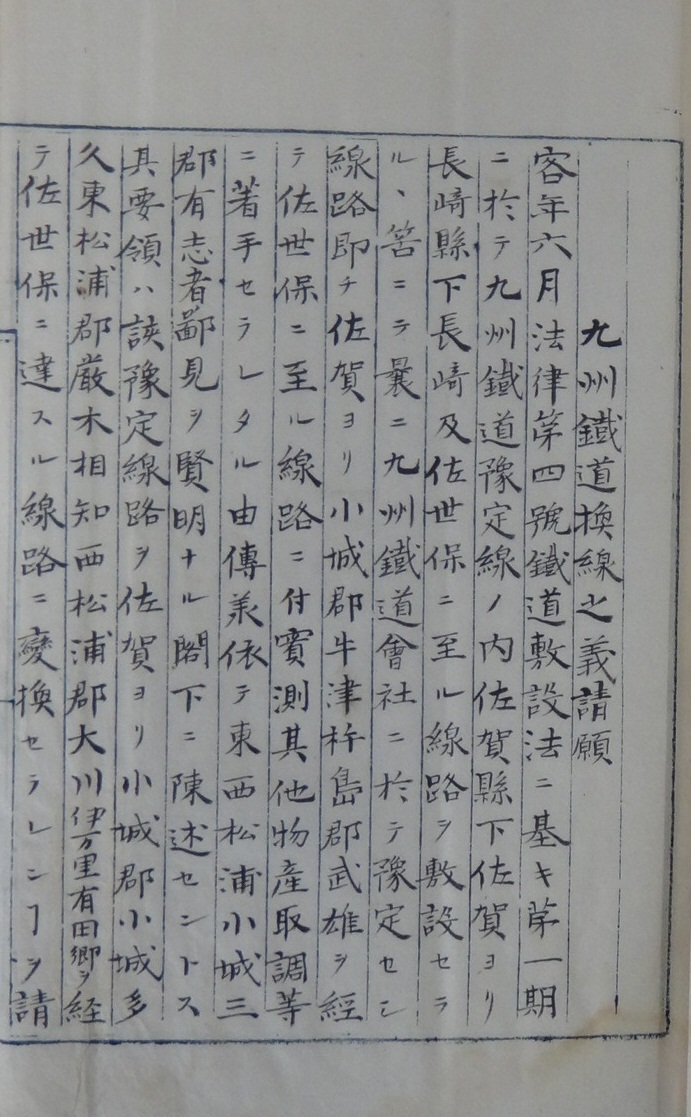 九州鐵道換線之義請願
客年六月法律第四號鐵道敷設法ニ基キ第一期
ニ於テ九州鐵道豫定線ノ内佐賀縣下佐賀ヨリ
長崎縣下長崎及佐世保ニ至ル線路ヲ敷設セラ
ル丶筈ニテ曩ニ九州鐵道會社ニ於テ豫定セシ
線路即チ佐賀ヨリ小城郡牛津杵島郡武雄ヲ經
テ佐世保ニ至ル線路ニ付實測其他物産取調等
ニ著手セラレタル由傳羕依テ東西松浦小城三
郡有志者鄙見ヲ賢明ナル閣下ニ陳述セントス
其要領ハ該豫定線路ヲ佐賀ヨリ小城郡小城多
久東松浦郡厳木相知西松浦郡大川伊万里有田郷ヲ経
テ佐世保ニ達スル線路ニ變換セラレンヿヲ請